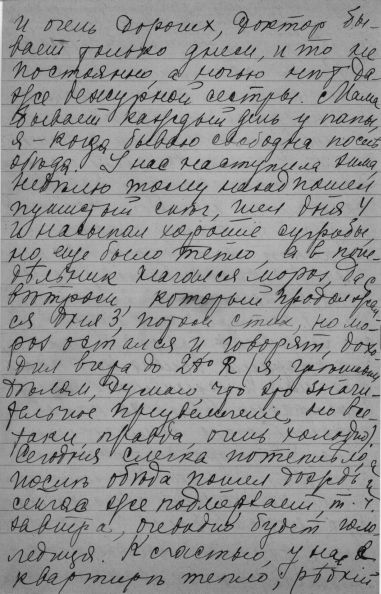 и очень дорогих, Доктор бы-
вает только днем, и то не
постоянно, а ночью нет да-
же дежурной сестры. Мама
бывает каждый день у папы,
я - когда бываю свободна послѣ
обѣда. У нас наступила зима,
недѣлю тому назад пошел
пушистый снѣг, шел дня 4
и насыпал хорошие сугробы,
но, еще было тепло, а в поне-
дѣльник начался мороз, да с
вѣтром который продолжал-
ся дня 3, потом стих, но мо-
роз остался и говорят, дохо-
дил вчера до 20° R (я
думаю, что это значи-
тельное преувеличение, но все-
таки, правда, очень холодно).
Сегодня слегка потеплѣло,
послѣ обѣда пошел дождь и
сейчас же подмерзает, т. ч.
завтра, очевидно будет голо-
ледица. К счастью, у нас в
квартирѣ тепло, рѣдкий